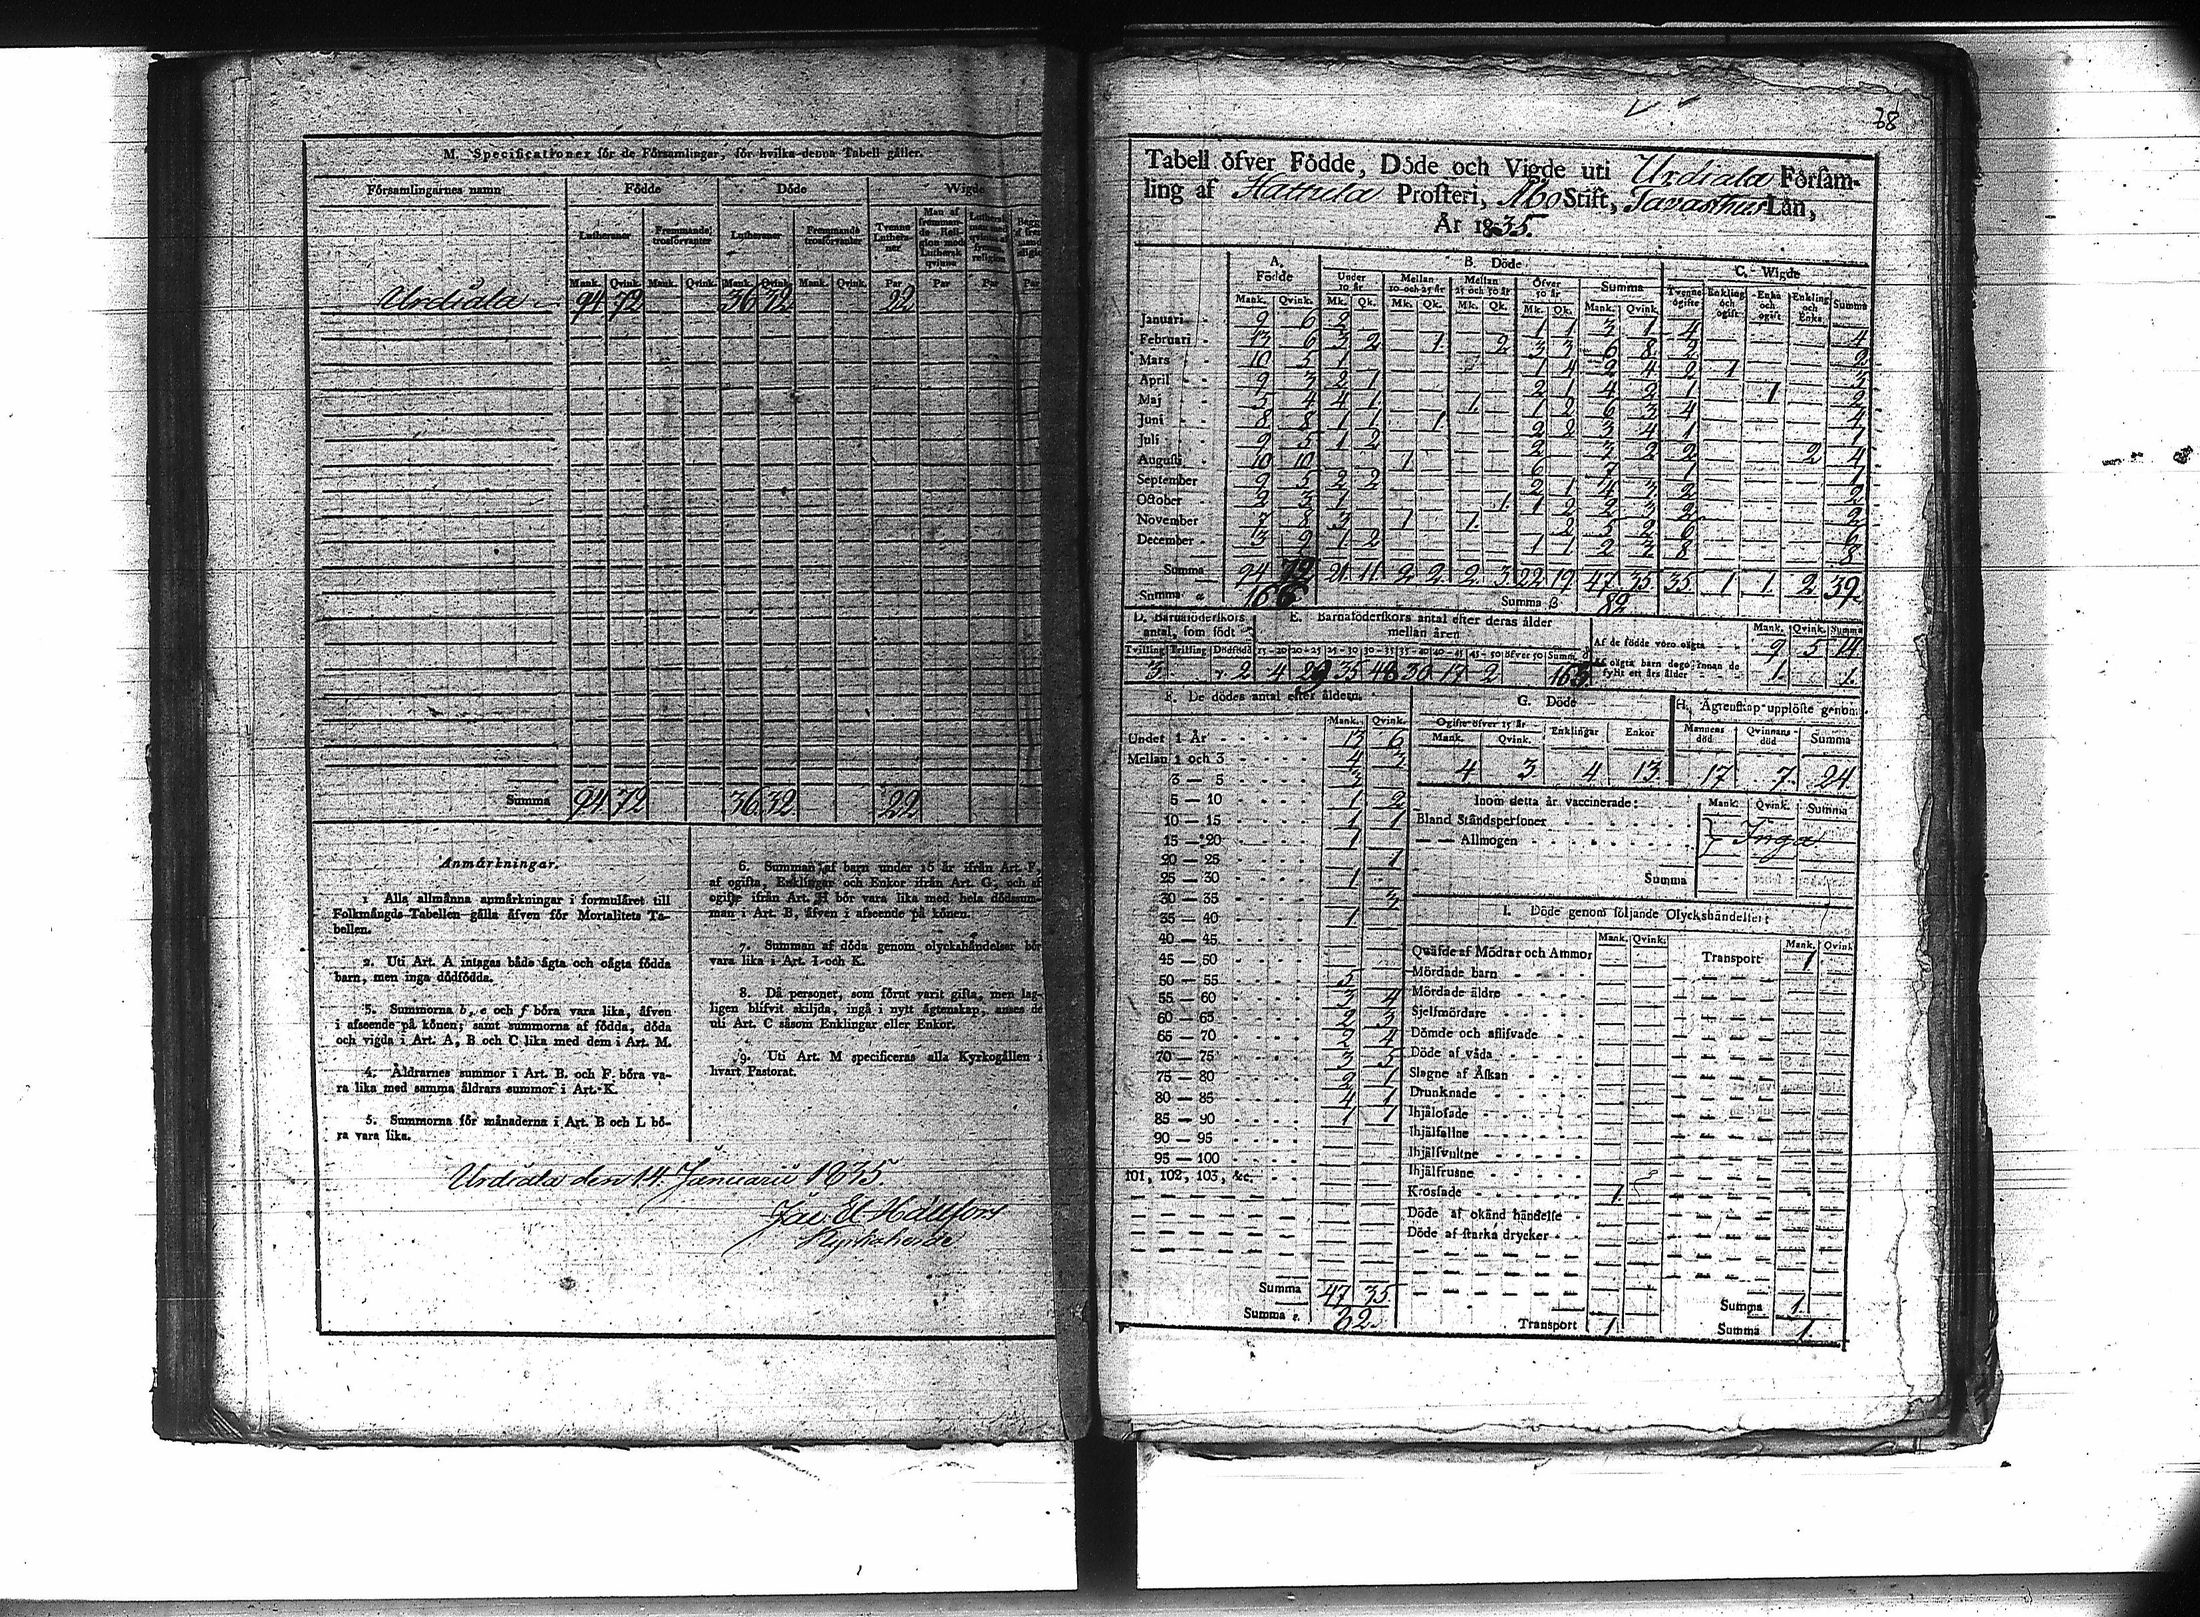 M. Specificationer för de Församlingar, för hvilka denna Tabell gäller.
Församlingarnes namn Födde Döde Wigde
Lutheraner Fremmande trosförvanter Lutheraner Fremmande trosförvanter Tvenne Luthera-ner Man af fremman-de Reli-gion med Luthersk qvinna
Mank. Qvink. Mank. Qvink. Mank. Qvink. Mank. Qvink. Par Par Par Par
Urdiala 94 72 36 32 22
Summa 94 72 36 32 22
Anmärkningar.
1 Alla allmänna anmärkningar i formuläret till
Folkmängds-Tabellen gälla äfven för Mortalitets Ta-
bellen.
2. Uti Art. A intagas både ägta och oägta födda
barn, men inga dödfödda.
3. Summorna b, e och f böra vara lika, äfven
i afseende på könen; samt summorna af födda, döda
och vigda i Art. A, B och C lika med dem i Art. M.
4. Åldrarnes summor i Art. B. och F. böra va-
ra lika med samma åldrars summor i Art. K.
5. Summorna för månaderna i Art. B och L bö-
ra vara lika.
6. Summan af barn under 15 år ifrån Art. F,
af ogifta, Enklingar och Enkor ifrån Art. G, och af
ogifte ifrån Art. H bör vara lika med hela dödssum-
man i Art. B, äfven i afseende på könen.
7. Summan af döda genom olyckshändelser bör
vara lika i Art. I och K.
8. Då personer, som förut varit gifta, men lag-
ligen blifvit skiljda, ingå i nytt ägtenskap, anses de
uti Art. C såsom Enklingar eller Enkor.
9. Uti Art. M specificeras alla Kyrkogällen i
hvart Pastorat.
Urdiala den 14. Januarii 1835.
Kyrkoherde
38
Tabell öfver Födde, Döde och Vigde uti Urdiala Försam-
ling af Hattula Prosteri, Åbo Stift, Tavasthus Län,
År 1835.
A. Födde B. Döde C. Wigde
Under 10 år Mellan 10 och 25 år Mellan 25 och 50 år Öfver 50 år Summa Twenne ogifte Enkling och ogift Enka och ogift Enkling och Enka Summa
Mank. Qvink. Mk. Qk. Mk. Qk. Mk. Qk. Mk. Qk. Mank. Qvink.
Januari 9 6 2 1 1 3 1 4 4
Februari 13 6 3 2 1 2 3 3 6 8 2 2
Mars 10 5 1 1 4 2 4 2 1 3
April 9 3 2 1 2 1 4 2 1 1 2
Maj 5 4 4 1 1 1 2 6 3 4 4
Juni 8 8 1 1 1 2 2 3 4 1 1
Juli 9 5 1 2 2 3 2 2 2 4
Augusti 10 10 1 6 7 1 1
September 9 5 2 2 2 1 4 3 2 2
October 2 3 1 1 1 2 2 3 2 2
November 7 8 3 1 1 2 5 2 6 6
December 3 9 1 2 1 1 2 2 8 8
Summa 94 72 21 11 2 2 2 3 22 19 47 35 35 1 1 2 39
Summa a 166 Summa b 82
D. Barnaföderskors antal, som födt E. Barnaföderskors antal efter deras ålder mellan åren
Tvilling Trilling Dödfödd 15-20 20-25 25-30 30-35 35-40 40-45 45-50 öfver 50 Summa
3 2 4 29 35 48 30 17 2 165
Mank. Qvink. Summa
Af de födde voro oägta 9 5 14
Af oägta barn dogo innan de fyllt ett års ålder 1 1
F. De dödes antal efter åldern.
Mank. Qvink.
Under 1 År 13 6
Mellan 1 och 3 4 3
3 — 5 3
5 — 10 1 2
10 — 15 1 1
15 — 20 1
20 — 25 1
25 — 30 1
30 — 35 3
35 — 40 1
40 — 45
45 — 50
50 — 55 5
55 — 60 3 4
60 — 65 2 3
65 — 70 2 4
70 — 75 3 5
75 — 80 2 1
80 — 85 4 1
85 — 90 1 1
90 — 95
95 — 100
101, 102, 103, &c.
Summa 47 35
Summa e. 82
G. Döde
Ogifte öfver 15 år Enklingar Enkor
Mank. Qvink.
4 3 4 13
H. Ägtenskap upplöste genom
Mannens död Qvinnans död Summa
17 7 24
Inom detta år vaccinerade: Mank. Qvink. Summa
Bland Ståndspersoner
— — Allmogen Inga
Summa
I. Döde genom följande Olyckshändelser:
Mank. Qvink. Mank. Qvink.
Qväfde af Mödrar och Ammor Transport 1
Mördade barn
Mördade äldre
Sjelfmördare
Dömde och aflifvade
Döde af våda
Slagne af Åskan
Drunknade
Ihjälofade
Ihjälfallne
Ihjälfvultne
Ihjälfrusne
Krossade 1
Döde af okänd händelse
Döde af starka drycker
Summa 1
Transport 1 Summa 1